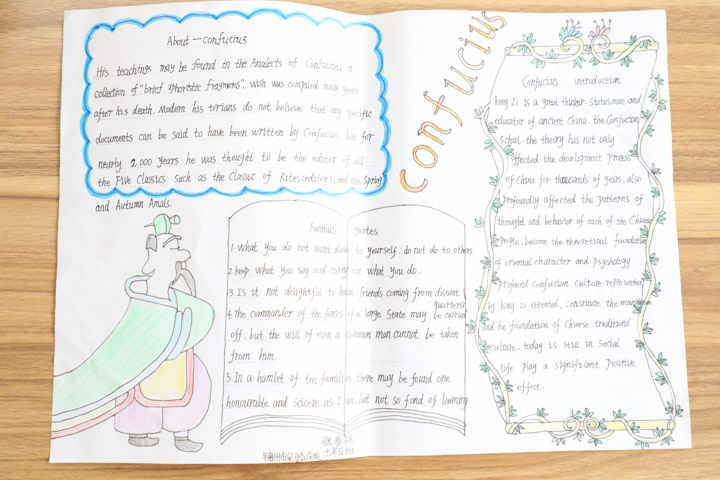 About—confucius
His teachings may be found in the Analects of Confucius, a
collection of "brief aphoristic fragments". Wich was compiled many years
after his death. Modern his torians do not believe that any specific
documents can be said to have been written by Confucius, but for
nearly 2 000 years he was thought to be the editor of all
the Five Classics such as the Classic of Rites (editor), and the Spring
and Autumn Annals.
confucius
Famous quotes
1. What you do not want done to yourself, do not do to others.
2. keep what you say and carry out what you do.
3. Is it not delightful to have friends coming from distant
quarters
4. The commander of the forces of a large State may be carried
off, but the will of even a common man cannot be taken
from him.
5. In a hamlet of ten families, there may be found one
honourable and sincere as I am, but not so fond of learning
Confucius introduction
kong Zi is a great thinker. Statesman, and
educator of ancient China. the Confucian
School. the theory has not only
affected the development process
of China for thousands of years, also
profoundly affected the patterns of
thought and behavior of each of the Chinese
people, become the theoretical foundation
of oriental character and psychology
profound confucian culture represented
by kong Zi cereated, constitute the mainstream
and he foundation of Chinese traditional
culture, today is still in Social
life play a significant positive
effect.